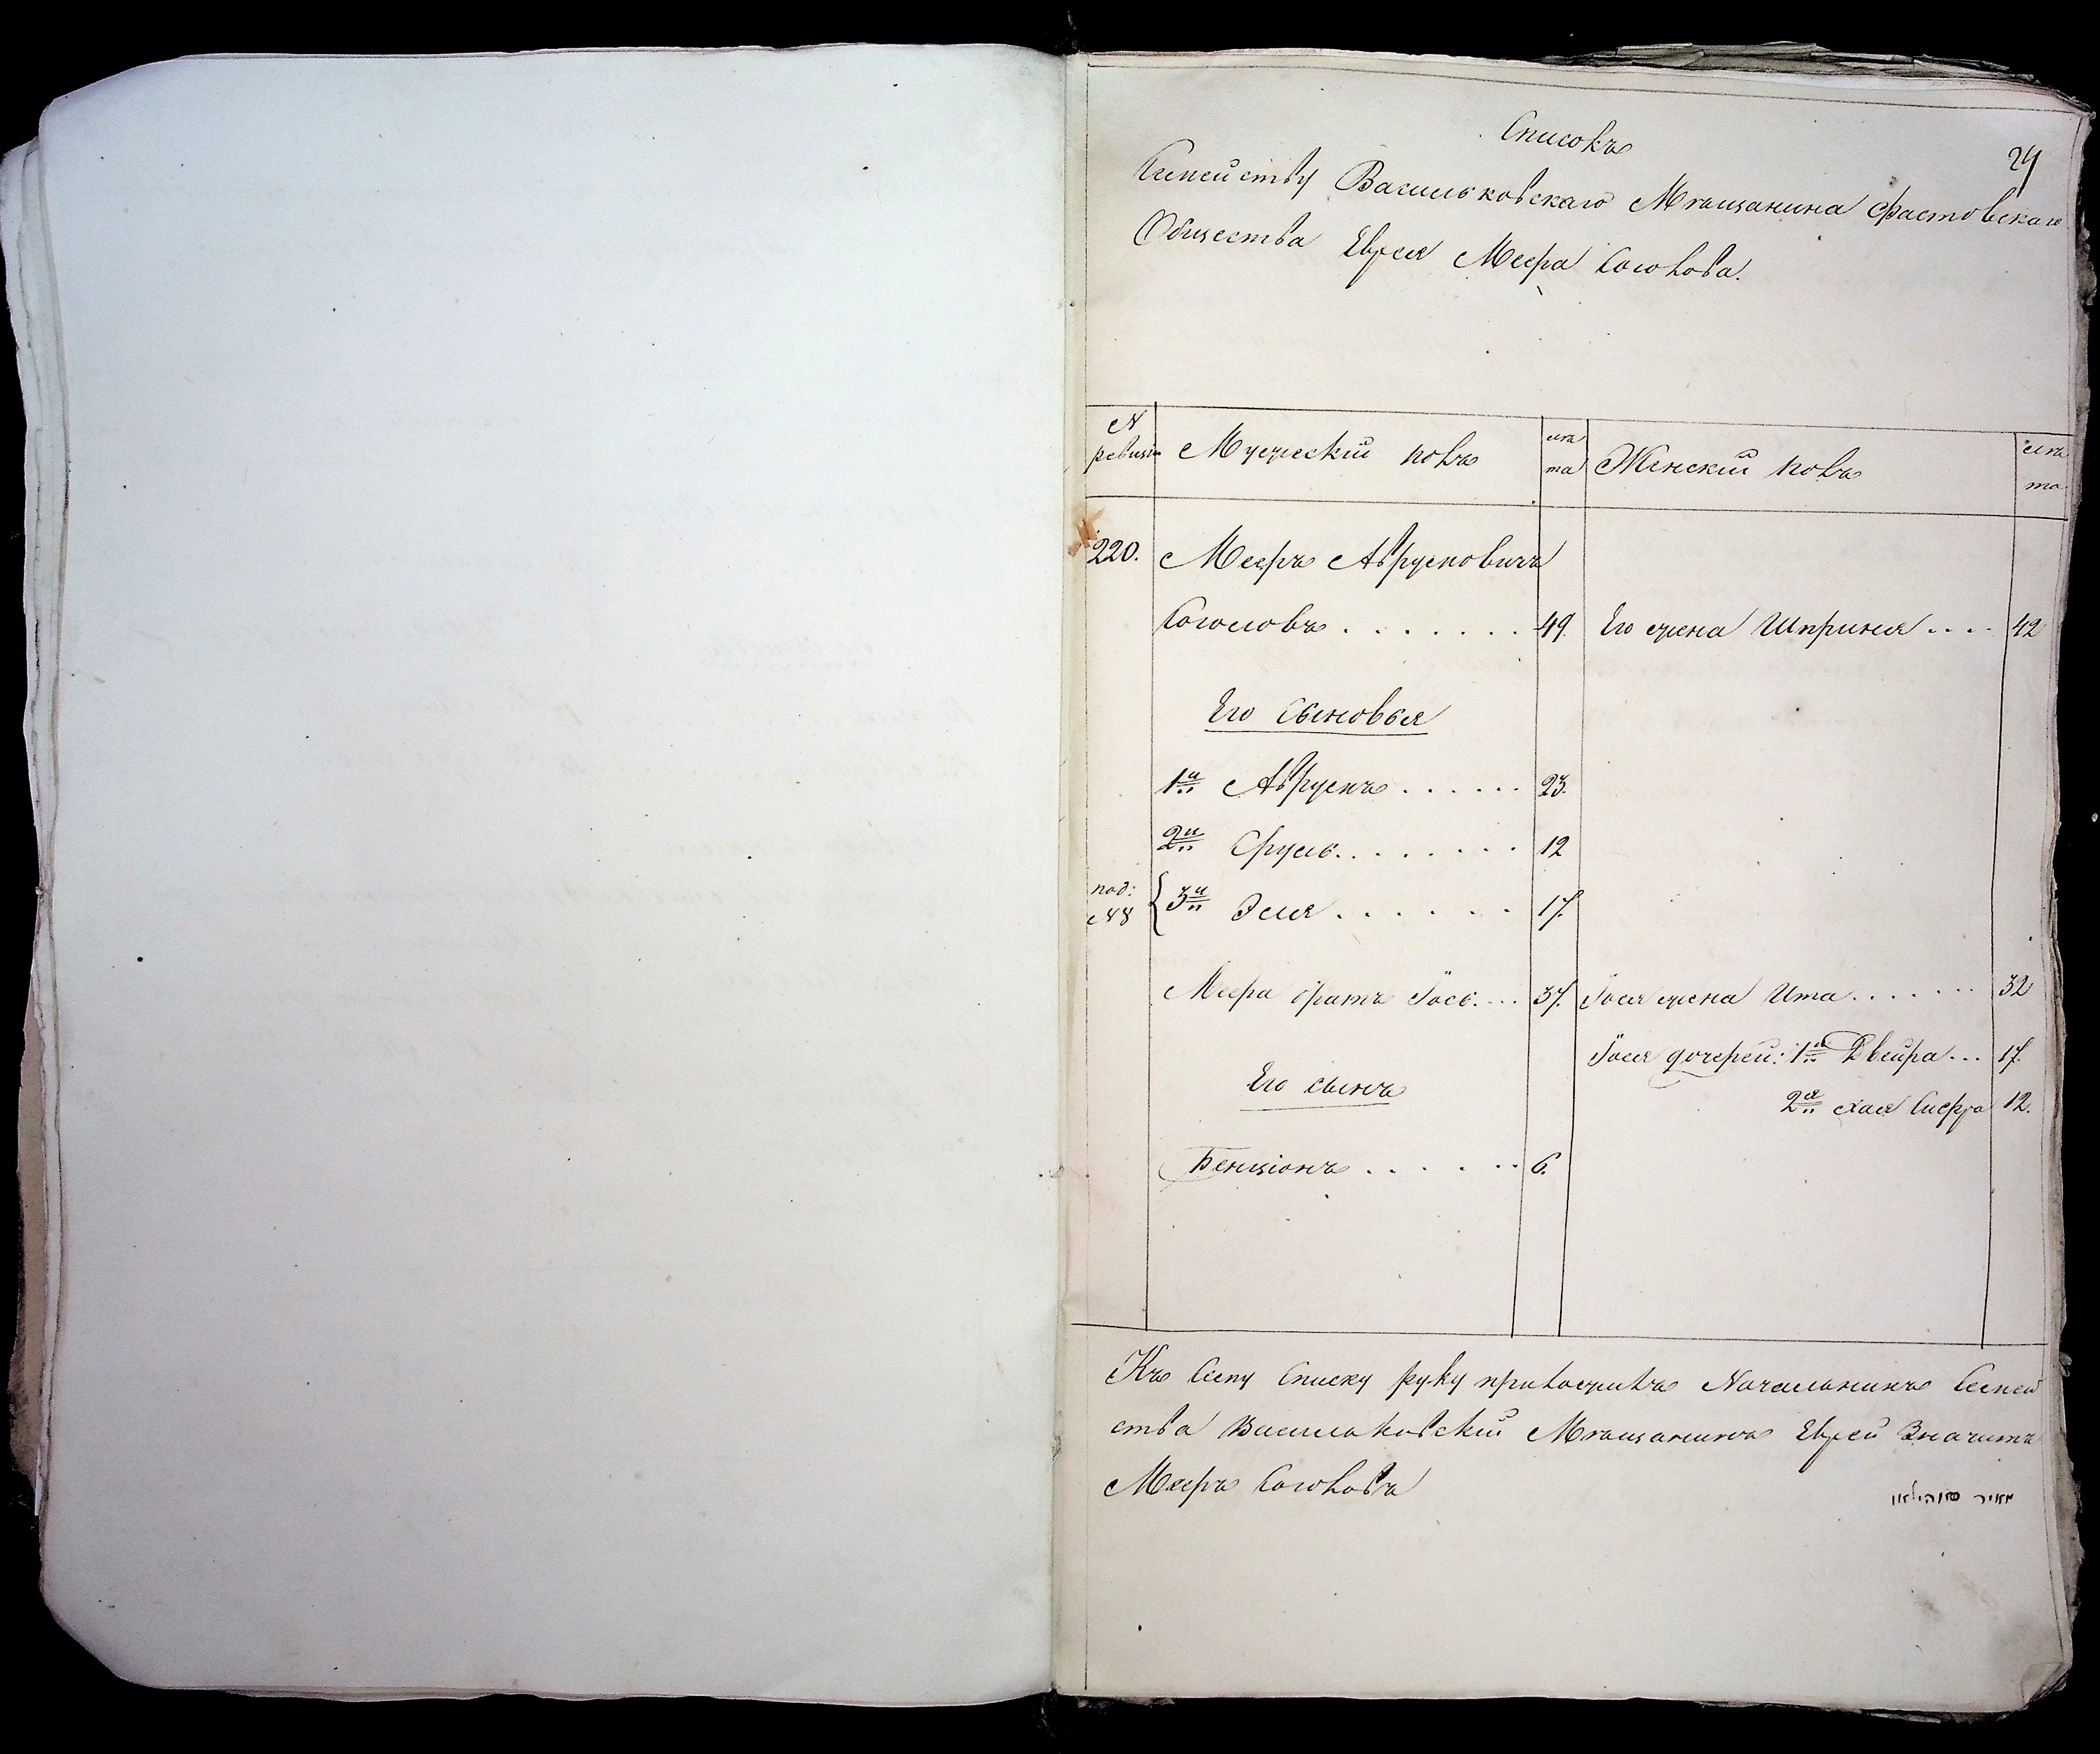 Списокъ
24
Семейству Васильковскаго Мѣщанина Фастовскаго
Общества Еврея Меера Соголова.
№ ревизіи
Мужескій полъ
лѣта
Женскій полъ
лѣта
220. Мееръ Аврумовичъ
Соголовъ . . . . . . . 49. Его жена Шпринея .... 42
Его сыновья
1й Аврумъ . . . . . . 23.
2й Сруль. . . . . . . . 12
под: №8 { 3й Эля . . . . . . 17.
Меера братъ Іось. ... 37. Іося жена Ита. . . . . . . 32
Іося дочерей: 1я Двейра ... 17.
Его сынъ 2я Хая Сифра 12.
Бенціонъ . . . . . . . 6.
Къ Сему Списку руку приложилъ Начальникъ Семей
ства Васильковскій Мѣщанинъ Еврей Значитъ
Мееръ Соголовъ
מאיר